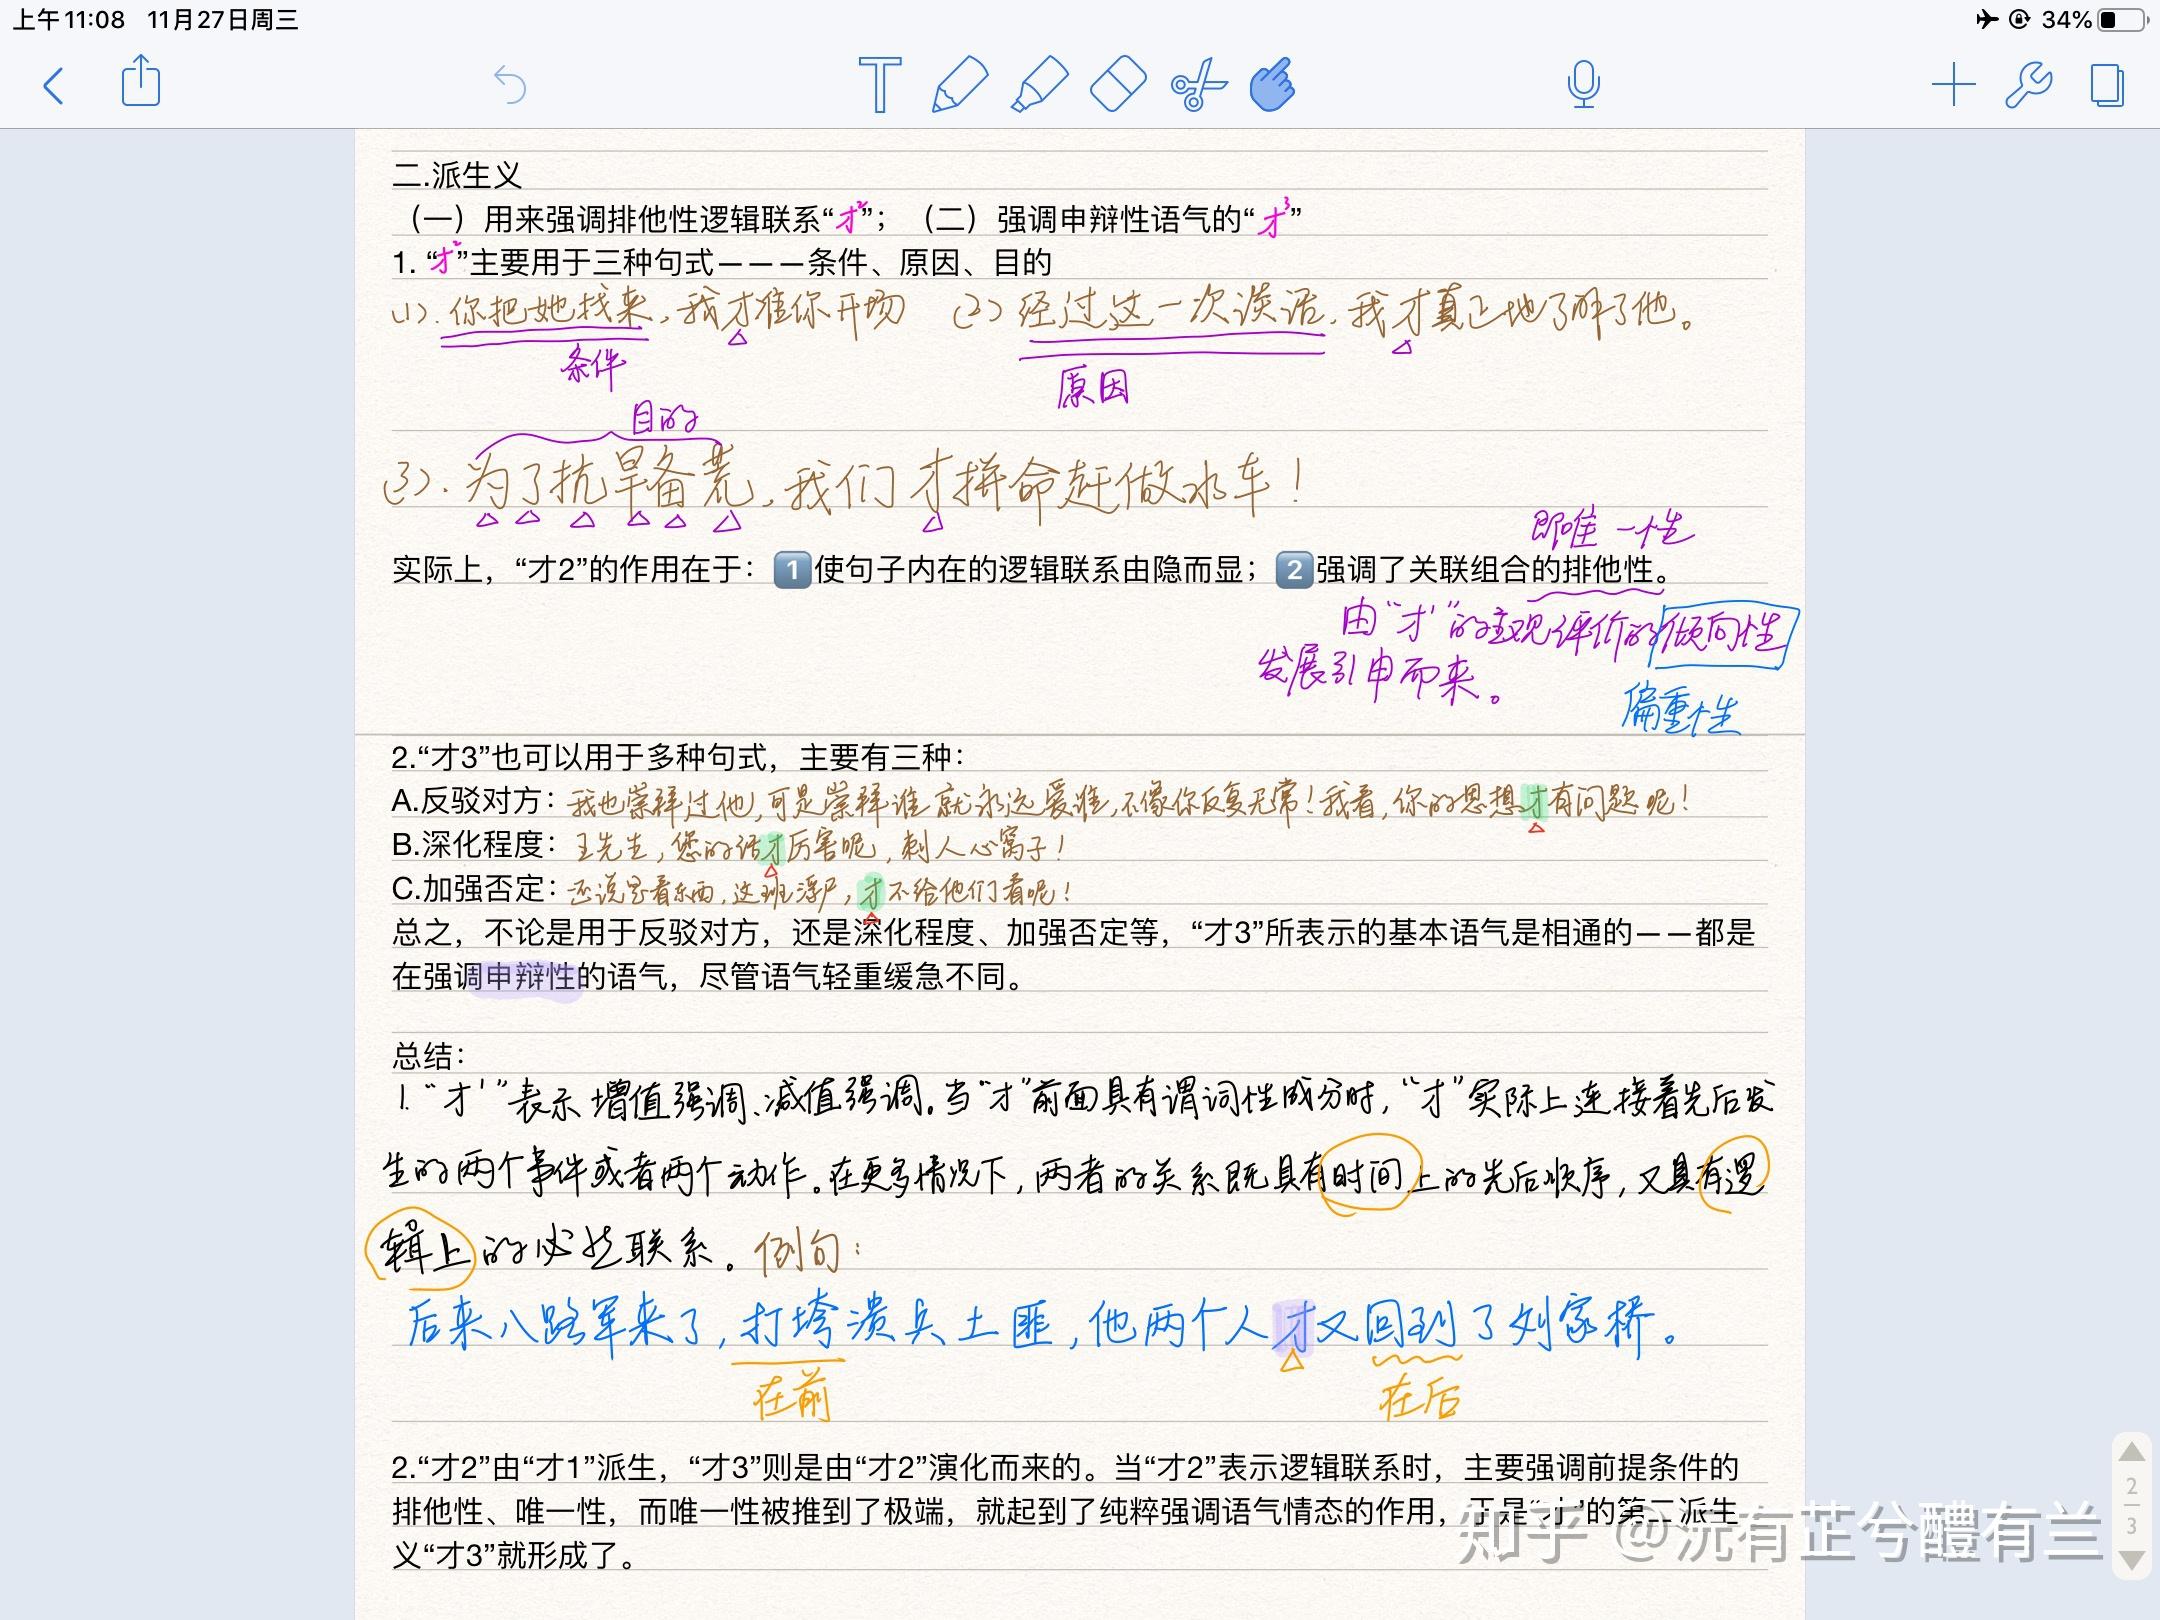 上午11:08 11月27日周三
34%
二.派生义
（一）用来强调排他性逻辑联系“才²”；（二）强调申辩性语气的“才³”
1. “才²”主要用于三种句式———条件、原因、目的
(1). 你把她找来，我才准你开场 (2) 经过这一次谈话，我才真正地了解了他。
条件
原因
目的
(3). 为了抗旱备荒，我们才拼命赶做水车！
即唯一性
实际上，“才2”的作用在于：1使句子内在的逻辑联系由隐而显；2强调了关联组合的排他性。
由“才¹”的主观评价的倾向性
发展引申而来。
偏重性
2.“才3”也可以用于多种句式，主要有三种：
A.反驳对方：我也崇拜过他，可是崇拜谁就永远爱谁，不像你反复无常！我看，你的思想才有问题呢！
B.深化程度：王先生，您的话才厉害呢，刺人心窝子！
C.加强否定：还说是看东西，这班浮尸，才不给他们看呢！
总之，不论是用于反驳对方，还是深化程度、加强否定等，“才3”所表示的基本语气是相通的——都是
在强调申辩性的语气，尽管语气轻重缓急不同。
总结：
1.“才¹”表示增值强调、减值强调。当“才”前面具有谓词性成分时，“才”实际上连接着先后发
生的两个事件或者两个动作。在更多情况下，两者的关系既具有时间上的先后顺序，又具有逻
辑上的必然联系。例句：
后来八路军来了，打垮溃兵土匪，他两个人才又回到了刘家桥。
在前
在后
2.“才2”由“才1”派生，“才3”则是由“才2”演化而来的。当“才2”表示逻辑联系时，主要强调前提条件的
排他性、唯一性，而唯一性被推到了极端，就起到了纯粹强调语气情态的作用，于是“才”的第二派生
义“才3”就形成了。
知乎 @沅有芷兮醴有兰
2
3